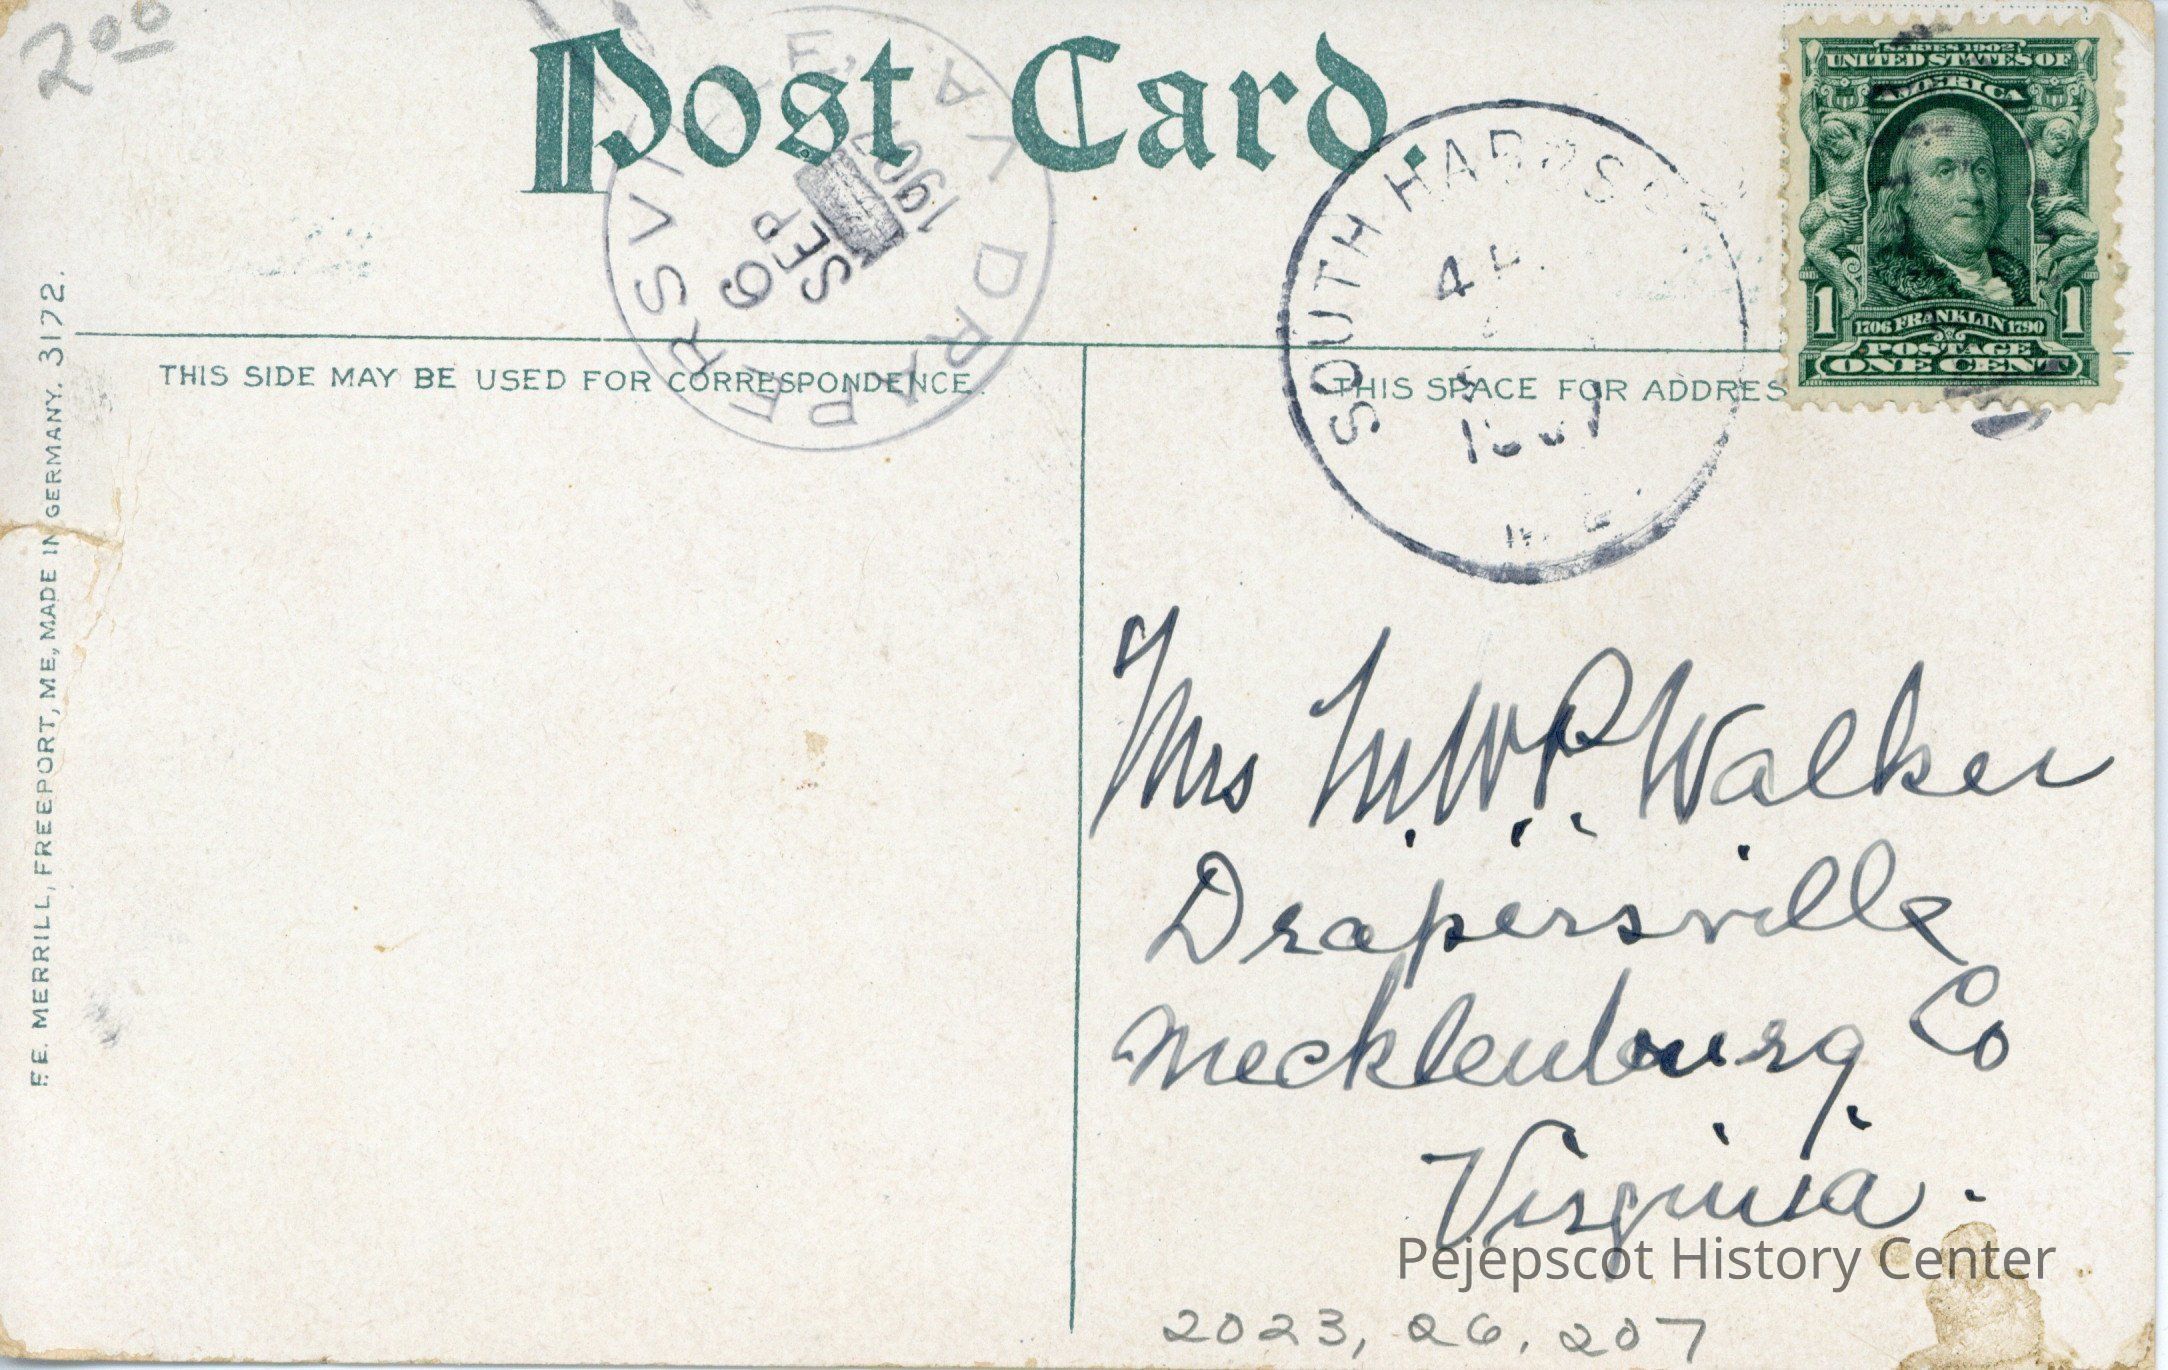 2 00
Post Card.
DRAPERSVILLE, VA.
SEP
6
SOUTH HARPSWELL
1907
ME.
SERIES 1902
UNITED STATES OF
AMERICA
1
1
1706 FRANKLIN 1790
POSTAGE
ONE CENT
THIS SIDE MAY BE USED FOR CORRESPONDENCE.
THIS SPACE FOR ADDRES
F.E. MERRILL, FREEPORT, ME, MADE IN GERMANY. 3172.
Mrs M. W. P. Walker
Drapersville
Mecklenburg Co
Virginia.
Pejepscot History Center
2023, 26, 207